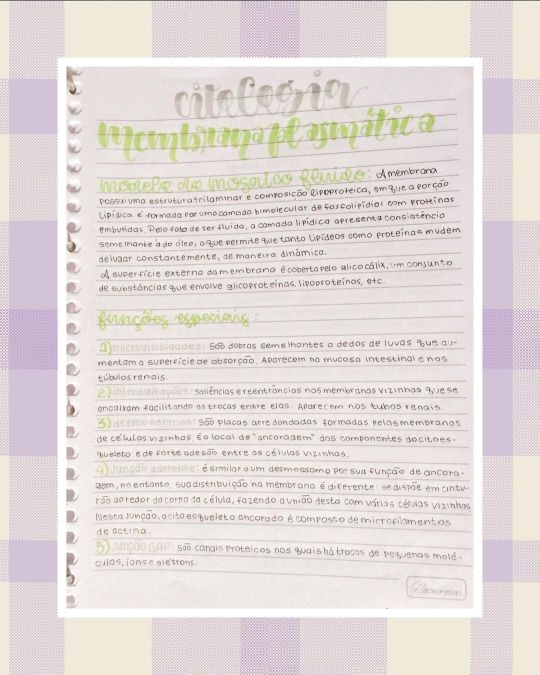 citologia
membrana plasmática
modelo de mosaico fluido: A membrana
possui uma estrutura trilaminar e composição lipoproteica, em que a porção
lipídica é formada por uma camada bimolecular de fosfolipídios com proteínas
embutidas. Pelo fato de ser fluido, a camada lipídica apresenta consistência
semelhante à do óleo, o que permite que tanto lipídeos como proteínas mudem
de lugar constantemente, de maneira dinâmica.
A superfície externa da membrana é coberta pelo glicocálix, um conjunto
de substâncias que envolve glicoproteínas, lipoproteínas, etc.
funções especiais:
1) microvilosidades: são dobras semelhantes a dedos de luvas que au-
mentam a superfície de absorção. Aparecem na mucosa intestinal e nos
túbulos renais.
2) interdigitações: saliências e reentrâncias nas membranas vizinhas que se
encaixam facilitando as trocas entre elas. Aparecem nos tubos renais.
3) desmossomos: são placas arredondadas formadas pelas membranas
de células vizinhas. É o local de "ancoragem" dos componentes do citoes-
queleto e de forte adesão entre as células vizinhas.
4) Junção aderente: é similar a um desmossomo por sua função de ancora-
gem, no entanto, sua distribuição na membrana é diferente: se dispõe em cintu-
rão ao redor do corpo da célula, fazendo a união desta com várias células vizinhas
Nesta junção, o citoesqueleto ancorado é composto de microfilamentos
de actina.
5) Junção GAP: são canais proteicos nos quais há trocas de pequenas molé-
culas, íons e elétrons.